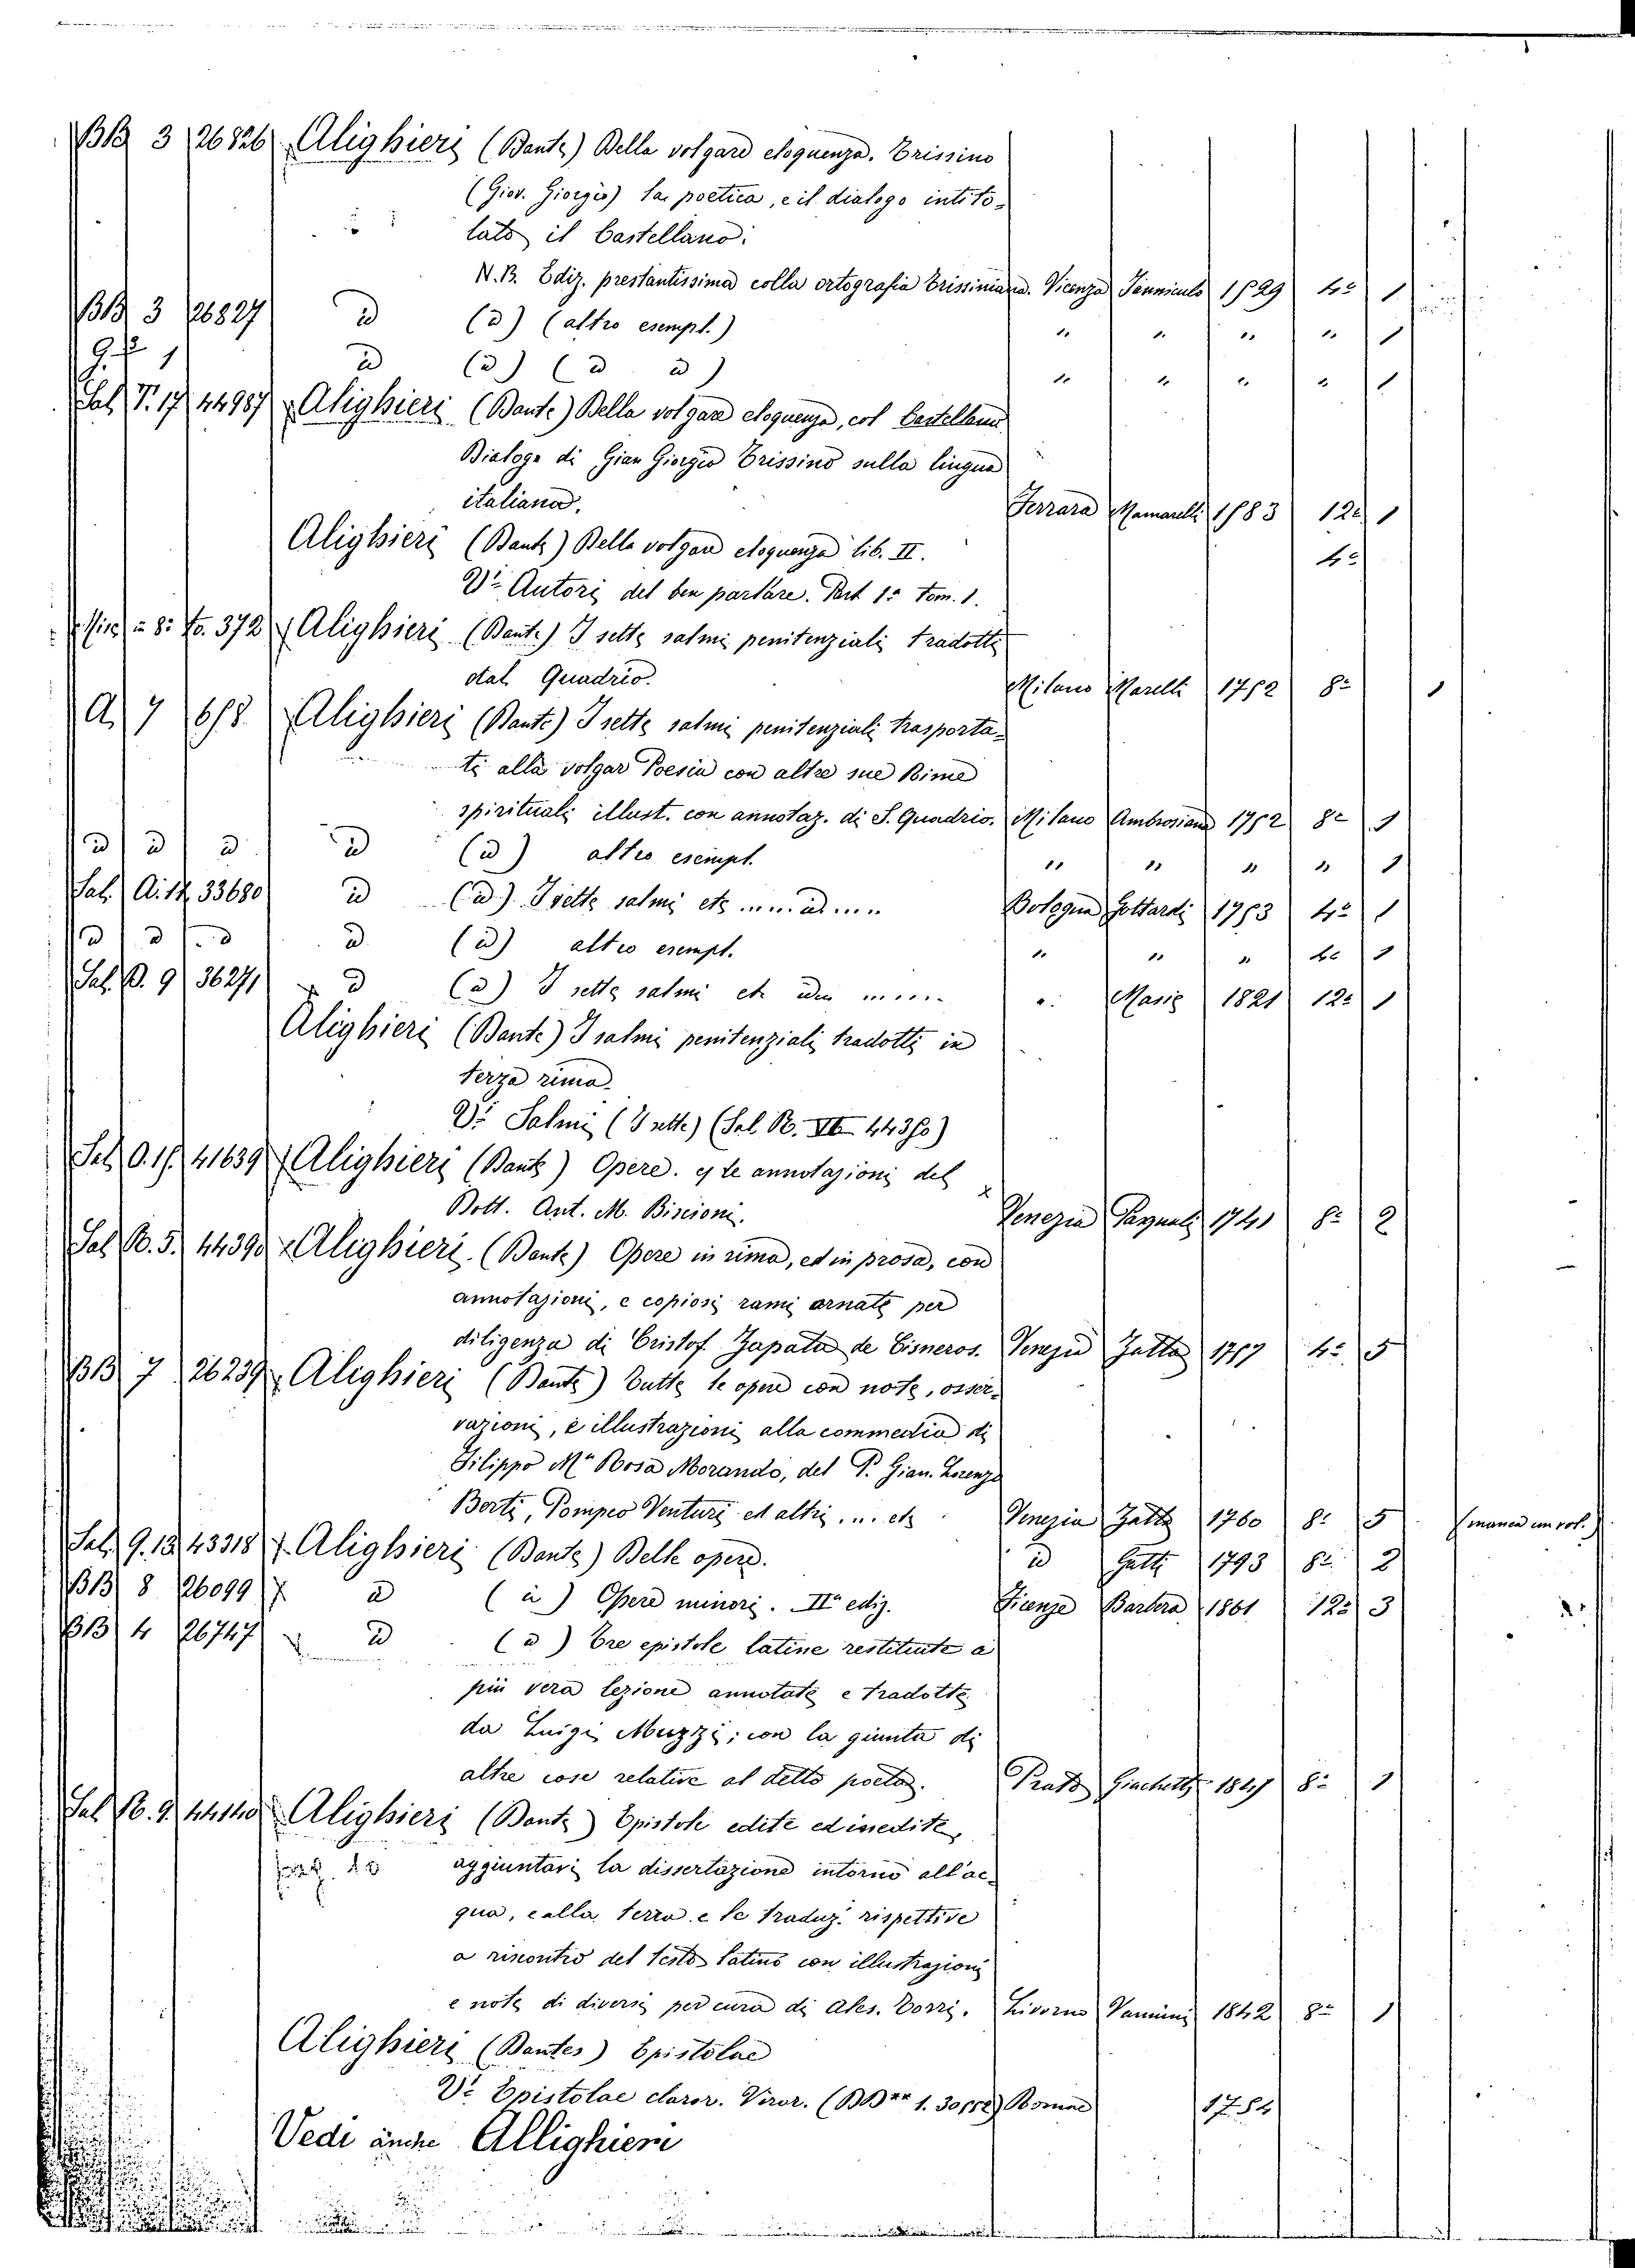 BB 3 26826 Alighieri (Dante) Della volgare eloquenza. Trissino
(Giov. Giorgio) La poetica, e il dialogo intito-
lato il Castellano.
N.B. Ediz. prestantissima colla ortografia Trissiniana. Vicenza Janniculo 1529 4º 1
BB 3 26827 id (id) (altro esempl.) " " " " 1
1 id (id) (id id) " " " " 1
Sal. T. 17 44987 Alighieri (Dante) Della volgare eloquenza, col Castellano
Dialogo di Gian Giorgio Trissino sulla lingua
italiana. Ferrara Mamarelli 1583 12º 1
Alighieri (Dante) Della volgare eloquenza lib. II. 4º
Vi Autori del ben parlare. Part 1ª Tom. 1.
372 Alighieri (Dante) I sette salmi penitenziali tradotti
dal Quadrio. Milano Marelli 1752 8º 1
A. 7 658 Alighieri (Dante) I sette salmi penitenziali trasporta-
ti alla volgar Poesia con altre sue Rime
spirituali illust. con annotaz. di S. Quadrio. Milano Ambrosiana 1752 8º 1
id id id id (id) altro esempl. " " " " 1
Sal. A. 14 33680 id (id) I sette salmi etc Bologna Gottardi 1753 4º 1
id id id id (id) altro esempl. " " " 4º 1
Sal. D. 9 36271 id (id) I sette salmi etc Masi 1821 12º 1
Alighieri (Dante) I salmi penitenziali tradotti in
terza rima.
Vi Salmi (I sette) (Sal. B. VI 44350)
Sal. O. 15 41639 Alighieri (Dante) Opere. le annotazioni del
Dott. Ant. M. Biscioni. Venezia Pasquali 1741 8º 2
Sal. B. 5. 44390 Alighieri (Dante) Opere in rima, ed in prosa, con
annotazioni, e copiosi rami ornate per
diligenza di Cristof. Zapata de Cisneros. Venezia Zatta 1757 4º 5
BB 7 26239 Alighieri (Dante) Tutte le opere con note, osser-
vazioni, e illustrazioni alla commedia di
Filippo Mª Rosa Morando, del P. Gian. Lorenzo
Berti, Pompeo Venturi ed altri. etc Venezia Zatta 1760 8º 5 (manca un vol.)
Sal. 9. 13 43318 Alighieri (Dante) Delle opere. id Gatti 1793 8º 2
BB 8 26099 id (id) Opere minori. IIª ediz. Firenze Barbera 1861 12º 3
BB 4 26747 id (id) Tre epistole latine restituite a
più vera lezione annotate e tradotte
da Luigi Muzzi; con la giunta di
altre cose relative al detto poeta. Prato Giachetti 1845 8º 1
Sal. B. 9. 44140 Alighieri (Dante) Epistole edite ed inedite,
aggiuntavi la dissertazione intorno all'ac-
qua, e alla terra e le traduz. rispettive
a riscontro del testo latino con illustrazioni
e note di diversi per cura di Ales. Torri. Livorno Vannini 1842 8º 1
Alighieri (Dantes) Epistolae
Vi Epistolae claror. Viror. Romae 1754
Vedi anche Allighieri